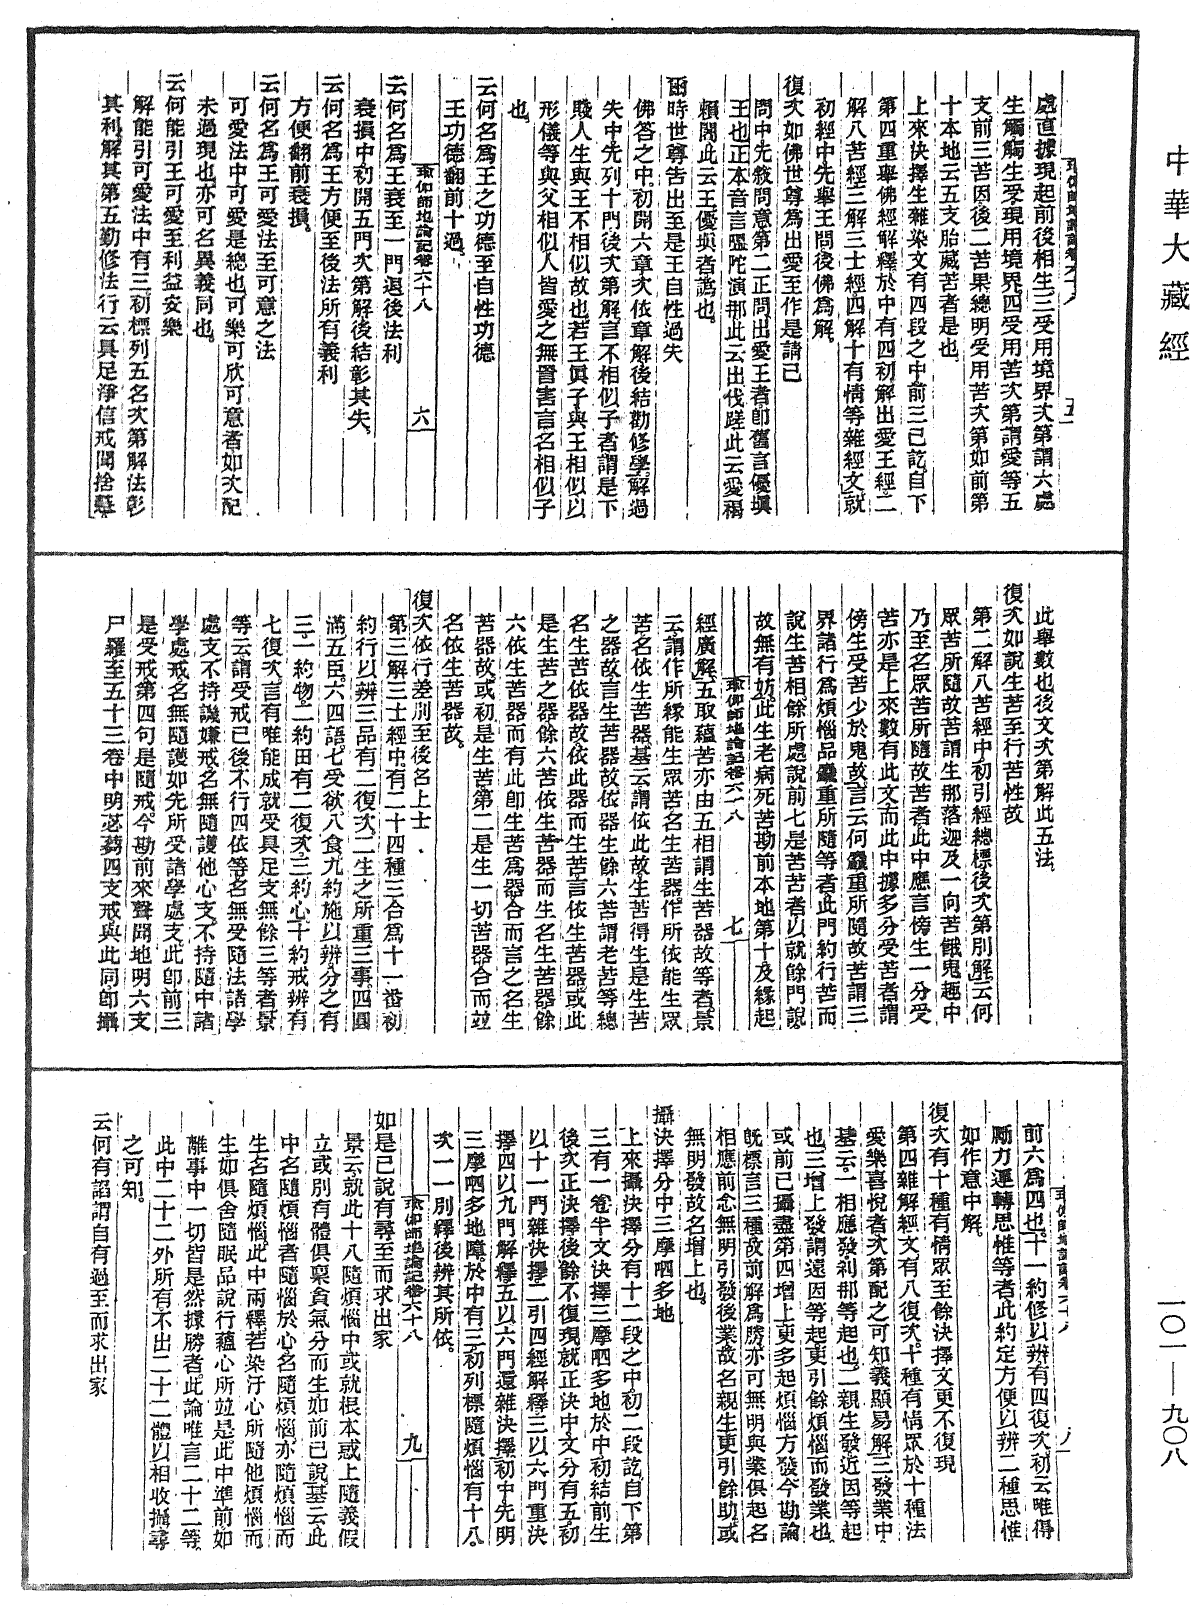 中華大藏經
一〇一—九〇八
瑜伽師地論記卷六十八 五
處直據現起前後相生三受用境界次第謂六處
生觸觸生受現用境界四受用苦次第謂愛等五
支前三苦因後二苦果總明受用苦次第如前第
十本地云五支胎藏苦者是也
上來決擇生雜染文有四段之中前三已訖自下
第四重舉佛經解釋於中有四初解出愛王經二
解八苦經三解三士經四解十有情等雜經文就
初經中先舉王問後佛為解
復次如佛世尊為出愛至作是請已
問中先敘問意第二正問出愛王者卽舊言優填
王也正本音言隱陀演那此云出伐蹉此云愛褐
賴闍此云王優填者訛也
爾時世尊告出至是王自性過失
佛答之中初開六章次依章解後結勸修學解過
失中先列十門後次第解言不相似子者謂是下
賤人生與王不相似故也若王眞子與王相似以
形儀等與父相似人皆愛之無晉害言名相似子
也
云何名為王之功德至自性功德
王功德翻前十過
瑜伽師地論記卷六十八 六
云何名為王衰至一門退後法利
衰損中初開五門次第解後結彰其失
云何名為王方便至後法所有義利
方便翻前衰損
云何名為王可愛法至可意之法
可愛法中可愛是總也可樂可欣可意者如次配
未過現也亦可名異義同也
云何能引王可愛至利益安樂
解能引可愛法中有三初標列五名次第解法彰
其利解其第五勤修法行云具足淨信戒聞捨慧
此舉數也後文次第解此五法
復次如說生苦至行苦性故
第二解八苦經中初引經總標後次第別解云何
眾苦所隨故苦謂生那落迦及一向苦餓鬼趣中
乃至名眾苦所隨故苦者此中應言傍生一分受
苦亦是上來數有此文而此中據多分受苦者謂
傍生受苦少於鬼故言云何麤重所隨故苦謂三
界諸行為煩惱品麤重所隨等者此門約行苦而
說生苦相餘所處說前七是苦苦者以就餘門說
故無有妨此生老病死苦勘前本地第十及緣起
瑜伽師地論記卷六十八 七
經廣解五取蘊苦亦由五相謂生苦器故等者景
云謂作所緣能生眾苦名生苦器作所依能生眾
苦名依生苦器基云謂依此故生苦得生是生苦
之器故言生苦器故依器生餘六苦謂老苦等總
名生苦依器故依此器而生苦言依生苦器或此
是生苦之器餘六苦依生苦器而生名生苦器餘
六依生苦器而有此卽生苦為器合而言之名生
苦器故或初是生苦第二是生一切苦器合而竝
名依生苦器故
復次依行差別至後名上士
第三解三士經中有二十四種三合為十一番初
約行以辨三品有二復次二生之所重三事四圓
滿五臣六四語七受欲八食九約施以辨分之有
三一約物二約田有二復次三約心十約戒辨有
七復次言有唯能成就受具足支無餘三等者景
等云謂受戒已後不行四依等名無受隨法諸學
處支不持譏嫌戒名無隨護他心支不持隨中諸
學處戒名無隨護如先所受諸學處支此卽前三
是受戒第四句是隨戒今勘前來聲聞地明六支
尸羅至五十三卷中明苾芻四支戒與此同卽攝
瑜伽師地論記卷六十八 八
前六為四也十一約修以辨有四復次初云唯得
勵力運轉思惟等者此約定方便以辨二種思惟
如作意中解
復次有十種有情眾至餘決擇文更不復現
第四雜解經文有八復次十種有情眾於十種法
愛樂喜悅者次第配之可知義顯易解三發業中
基云一相應發刹那等起也二親生發近因等起
也三增上發謂遠因等起更引餘煩惱而發業也
或前已攝盡第四增上更多起煩惱方發今勘論
旣標言三種故前解為勝亦可無明與業俱起名
相應前念無明引發後業故名親生更引餘助或
無明發故名增上也
攝決擇分中三摩呬多地
上來攝決擇分有十二段之中初二段訖自下第
三有一卷半文決擇三摩呬多地於中初結前生
後次正決擇後餘不復現就正決中文分有五初
以十一門雜決擇二引四經解釋三以六門重決
擇四以九門解釋五以六門還雜決擇初中先明
三摩呬多地障於中有三初列標隨煩惱有十八
次一一別釋後辨其所依
瑜伽師地論記卷六十八 九
如是已說有尋至而求出家
景云就此十八隨煩惱中或就根本惑上隨義假
立或別有體俱稟貪氣分而生如前已說基云此
中名隨煩惱者隨惱於心名隨煩惱亦隨煩惱而
生名隨煩惱此中兩釋若染汙心所隨他煩惱而
生如俱舍隨眠品說行蘊心所竝是此中準前如
離事中一切皆是然據勝者此論唯言二十二等
此中二十二外所有不出二十二體以相收攝尋
之可知
云何有諂謂自有過至而求出家